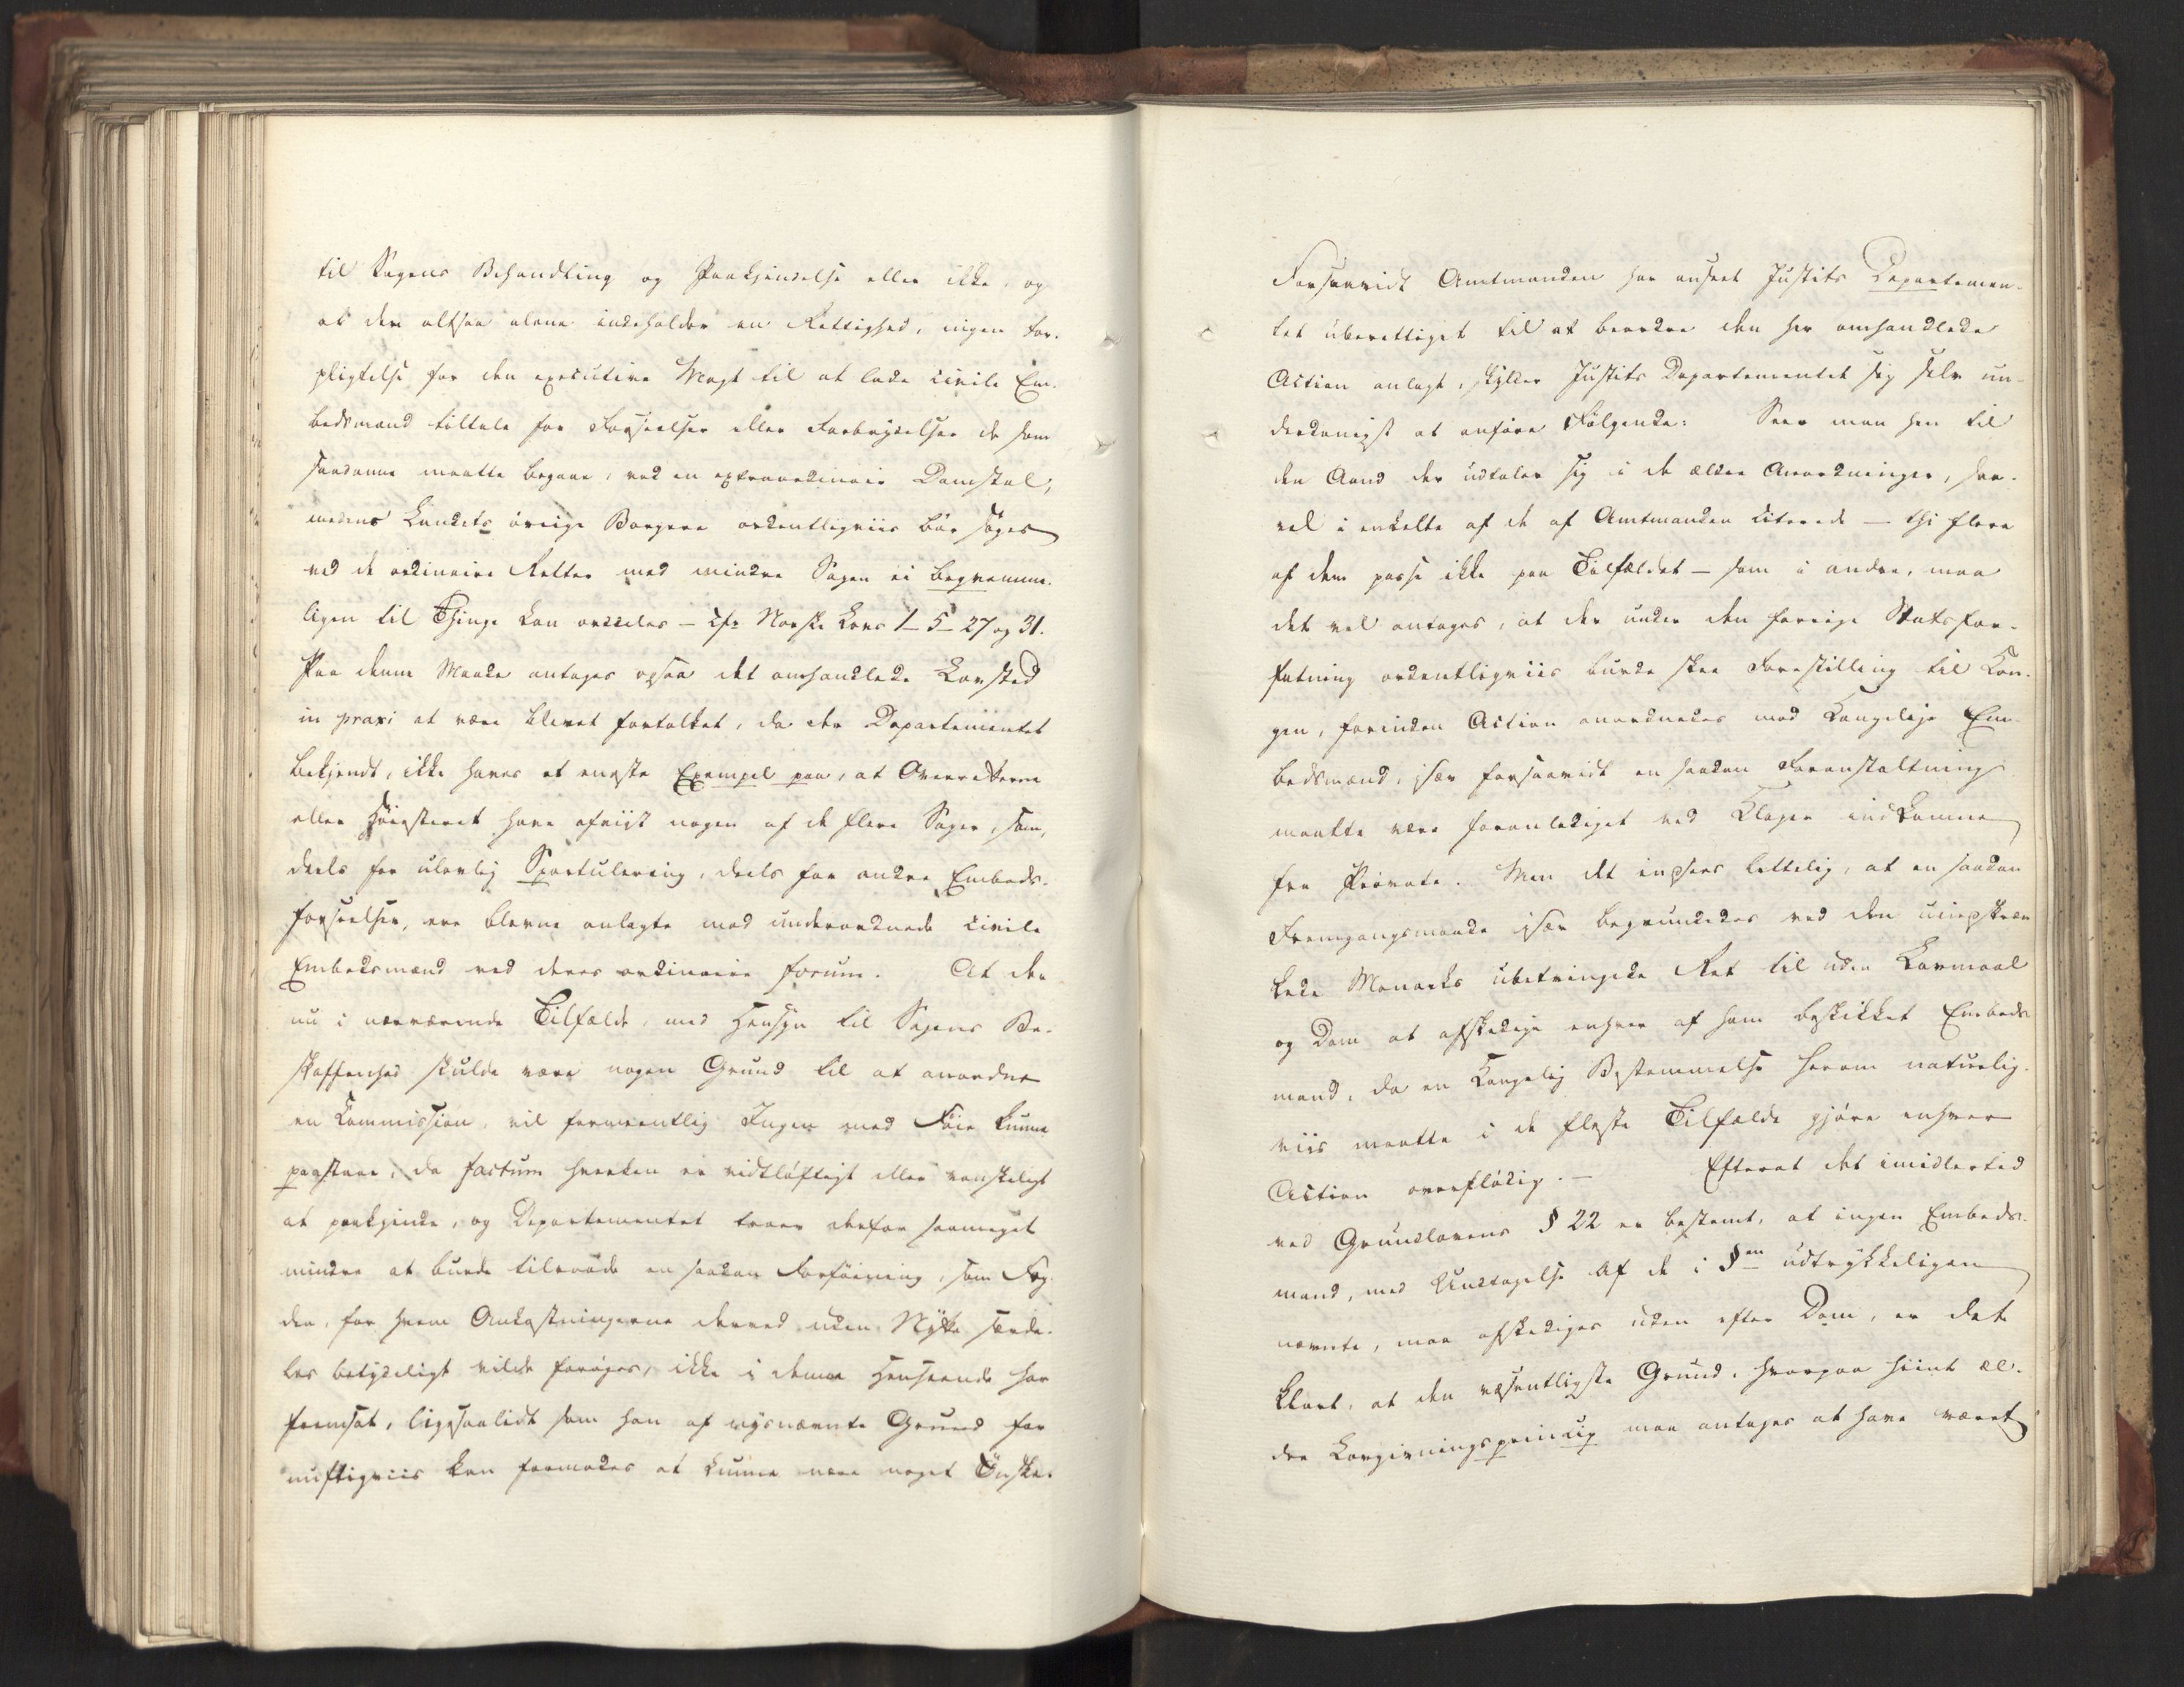 til Sagens Behandling og Paakjendelse eller ikke, og
at den altsaa alene indeholder en Rettighed, ingen For-
pligtelse for den executive Magt til at lade civile Em-
bedsmænd tiltale for Forseelser eller Forbrydelser de som
saadanne maatte begaae, ved en extraordinair Domstol,
medens Landets øvrige Borgere ordentligviis bør søges
ved de ordinaire Retter med mindre Sagen ei beqvemme-
ligen til Thinge kan ordeeles – cfr Norske Lovs 1–5–27 og 31.
Paa denne Maade antages ogsaa det omhandlede Lovsted
in praxi at være blevet fortolket, da der Departementet
bekjendt, ikke haves et eneste Exempel paa, at Overretterne
eller Høiesteret have afviist nogen af de flere Sager, som,
deels for ulovlig Sportulering, deels for andre Embeds-
forseelser, ere blevne anlagte mod underordnede civile
Embedsmænd ved deres ordinaire forum. At der
nu i nærværende Tilfælde, med Hensyn til Sagens Be-
skaffenhed skulde være nogen Grund til at anordne
en Commission, vil formeentlig Ingen med Føie kunne
paastaae, da factum hverken er vidtløftigt eller vanskeligt
at paakjende, og Departementet troer derfor saameget
mindre at burde tilraade en saadan Forføining, som Fog-
den, for hvem Omkostningerne derved uden Nytte særde-
les betydeligt vilde forøges, ikke i denne Henseende har
fremsat, ligesaalidt som han af nysnævnte Grund for-
nuftigviis kan formodes at kunne nære noget Ønske.
Forsaavidt Amtmanden har anseet Justits Departemen-
tet uberettiget til at beordre den her omhandlede
Action anlagt, skylder Justits Departementet sig selv un-
derdanigst at anføre Følgende: Seer man hen til
den Aand der udtaler sig i de ældre Anordninger, saa-
vel i enkelte af de af Amtmanden citerede – thi flere
af dem passe ikke paa Tilfældet – som i andre, maa
det vel antages, at der under den forrige Statsfor-
fatning ordentligviis burde skee Forestilling til Kon-
gen, forinden Action anordnedes mod Kongelige Em-
bedsmænd, især forsaavidt en saadan Foranstaltning
maatte være foranlediget ved Klager indkomne
fra Private. Men det indsees lettelig, at en saadan
Fremgangsmaade især begrundedes ved den uindskræn-
kede Monarks ubetingede Ret til uden Lovmaal
og Dom at afskedige enhver af ham beskikket Embeds-
mand, da en Kongelig Bestemmelse herom naturlig-
viis maatte i de fleste Tilfælde gjøre enhver
Action overflødig. – Efterat det imidlertid
ved Grundlovens § 22 er bestemt, at ingen Embeds-
mand, med Undtagelse af de i §en udtrykkeligen
nævnte, maa afskediges uden efter Dom, er det
klart, at den væsentligste Grund, hvorpaa hiint æl-
dre Lovgivningsprincip maa antages at have været